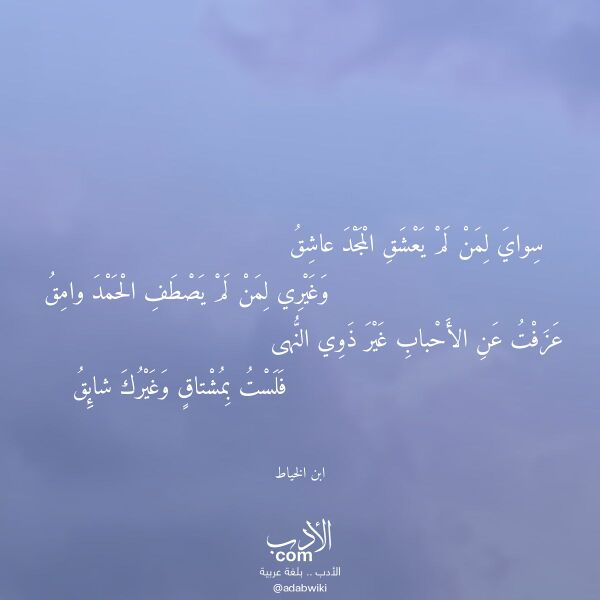 سِوايَ لِمَنْ لَمْ يَعْشَقِ الْمَجْدَ عاشِقُ
وَغَيْرِي لِمَنْ لَمْ يَصْطَفِ الْحَمْدَ وامِقُ
عَزَفْتُ عَنِ الأَحْبابِ غَيْرَ ذَوِي النُّهى
فَلَسْتُ بِمُشْتاقٍ وَغَيْرُكَ شائِقُ
ابن الخياط
الأدب
com
الأدب .. بلغة عربية
@adabwiki